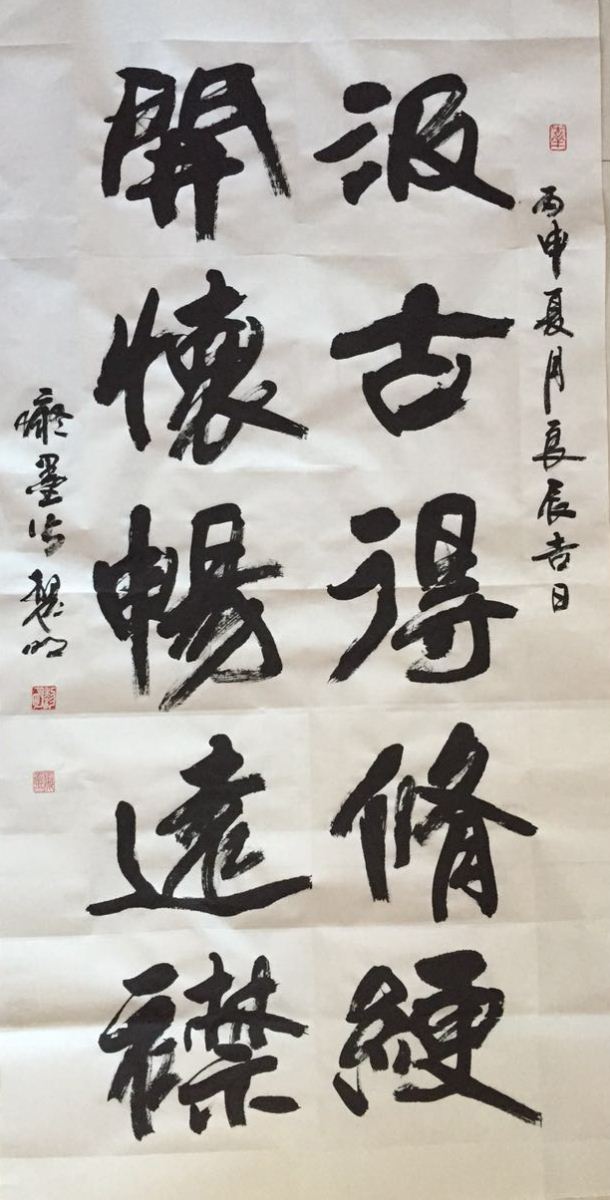 丙申夏月良辰吉日
汲古得脩綆
開懷暢遠襟
墨